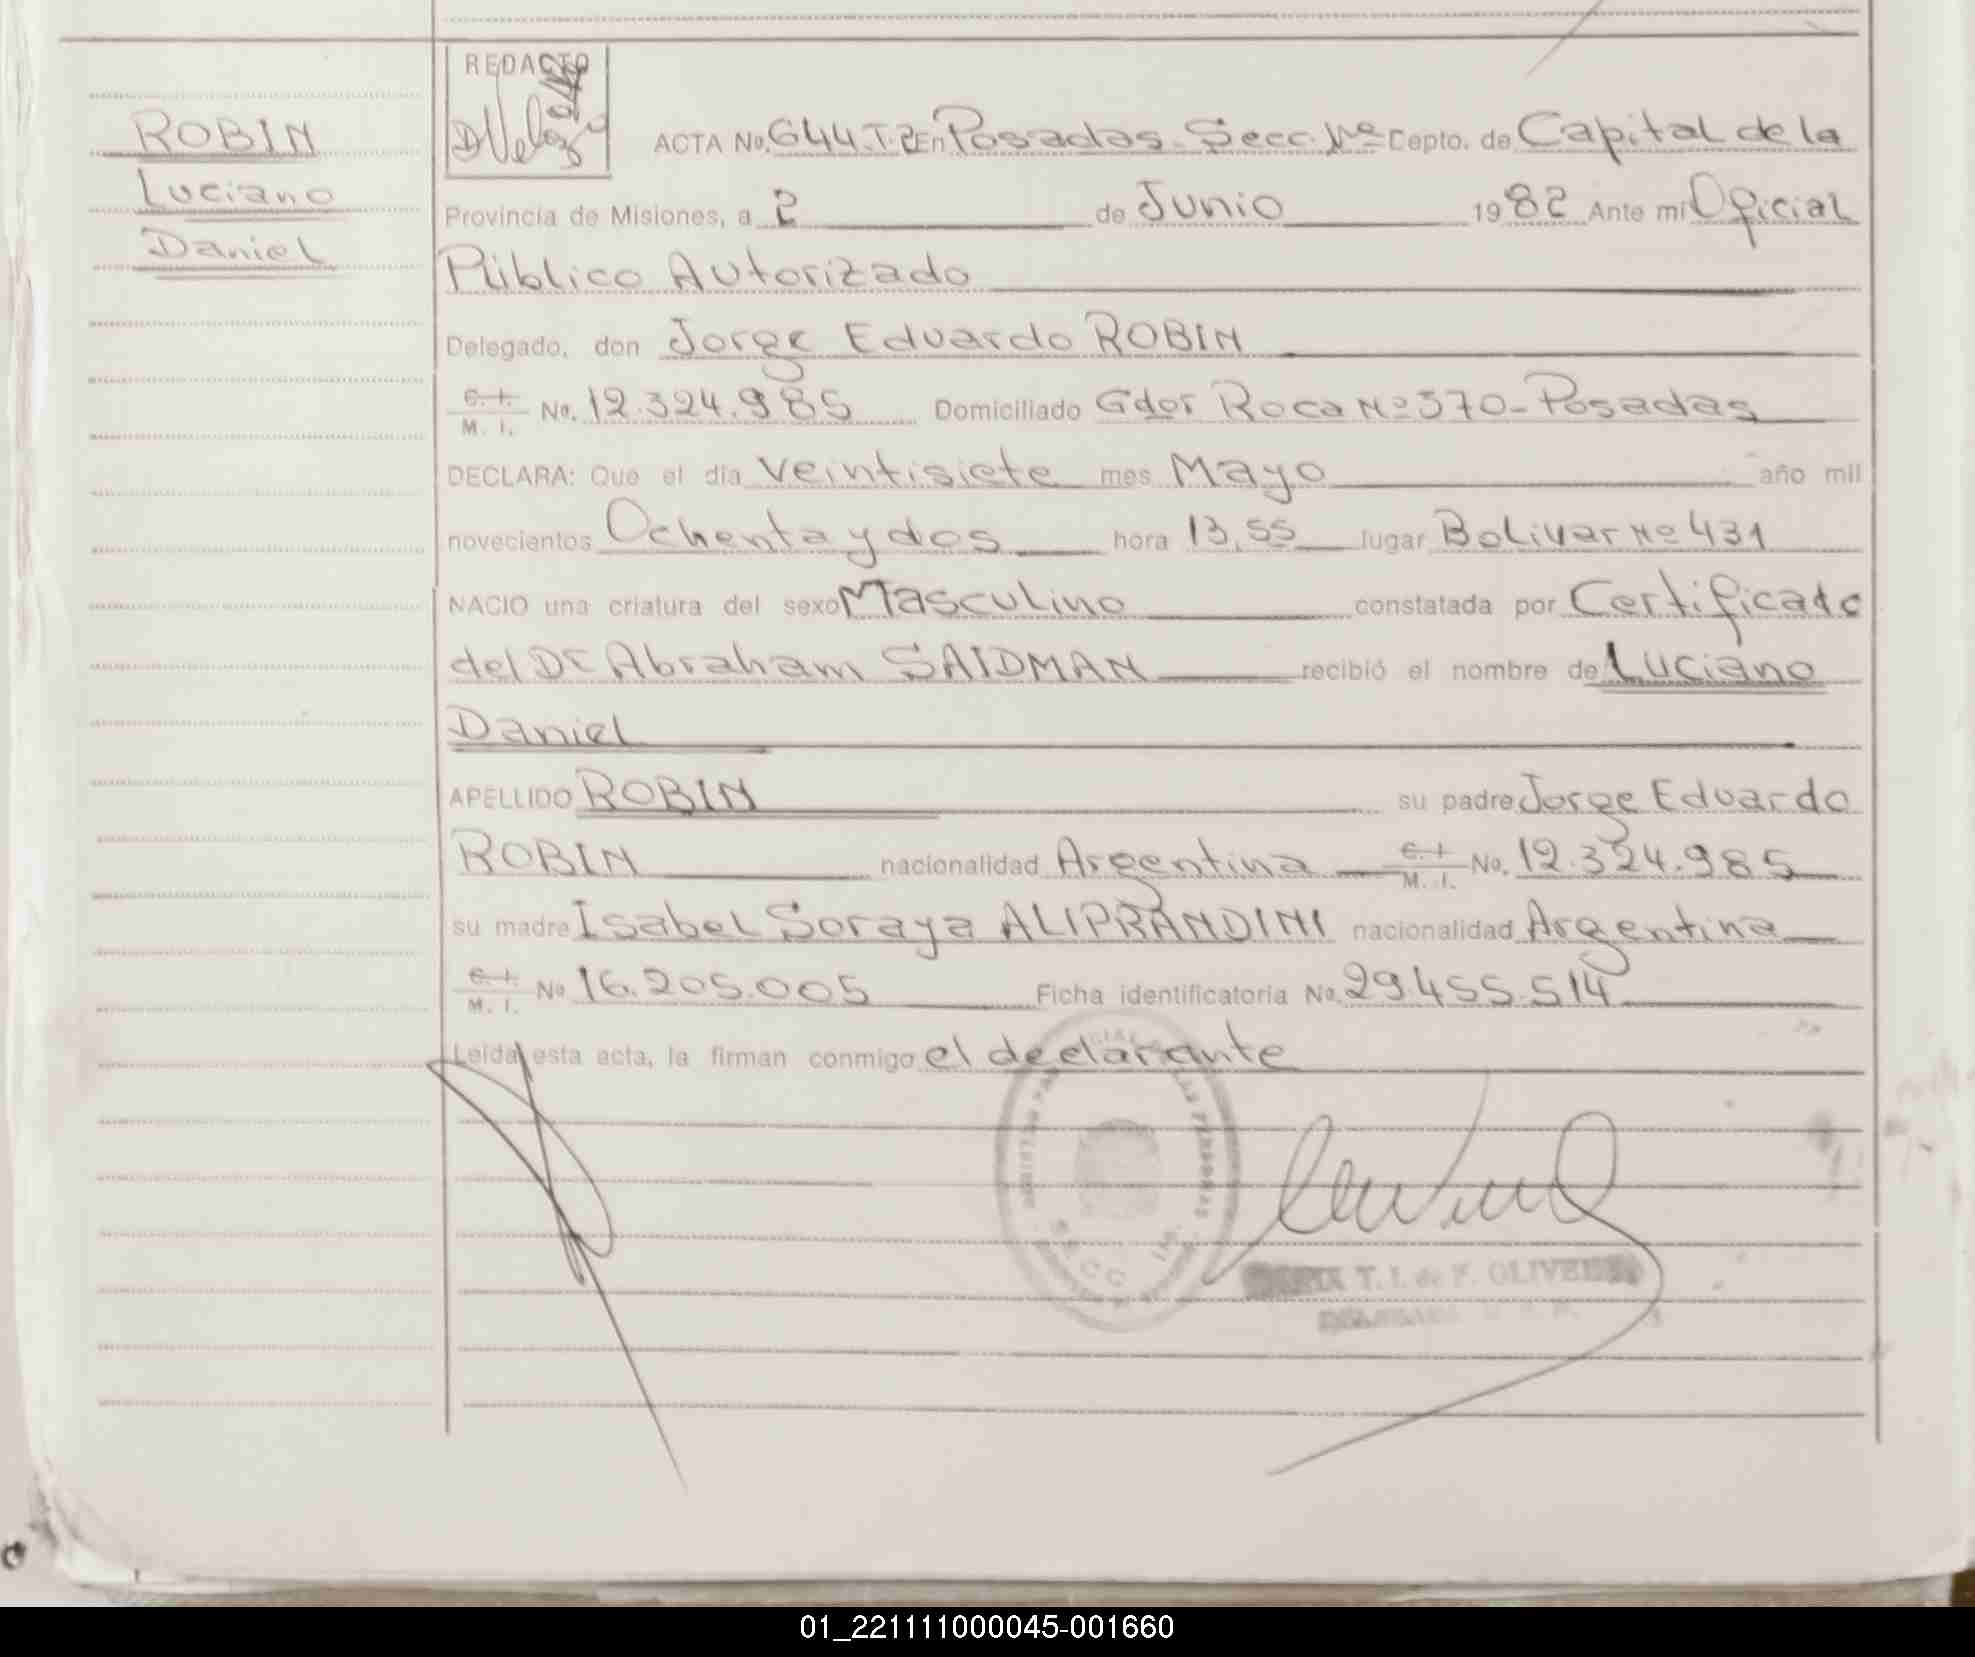 ROBIN
Luciano
Daniel
REDACTO
ACTA No. 644.T.2 En Posadas - Secc. 1ra Depto. de Capital de la
Provincia de Misiones, a 2 de Junio 1982 Ante mi Oficial
Público Autorizado
Delegado, don Jorge Eduardo ROBIN
C. I.
M. I. No. 12.324.985 Domiciliado Gdor Roca Nº 370 - Posadas
DECLARA: Que el día veintisiete mes Mayo año mil
novecientos Ochenta y dos hora 13,55 lugar Bolivar Nº 431
NACIO una criatura del sexo Masculino constatada por Certificado
del Dr Abraham SAIDMAN recibió el nombre de Luciano
Daniel
APELLIDO ROBIN su padre Jorge Eduardo
ROBIN nacionalidad Argentina C. I.
M. I. No. 12.324.985
su madre Isabel Soraya ALIPRANDINI nacionalidad Argentina
C. I.
M. I. No 16.205.005 Ficha identificatoria No. 29.455.514
Leída esta acta, la firman conmigo el declarante
T. I. de F. OLIVEIRA
01_221111000045-001660